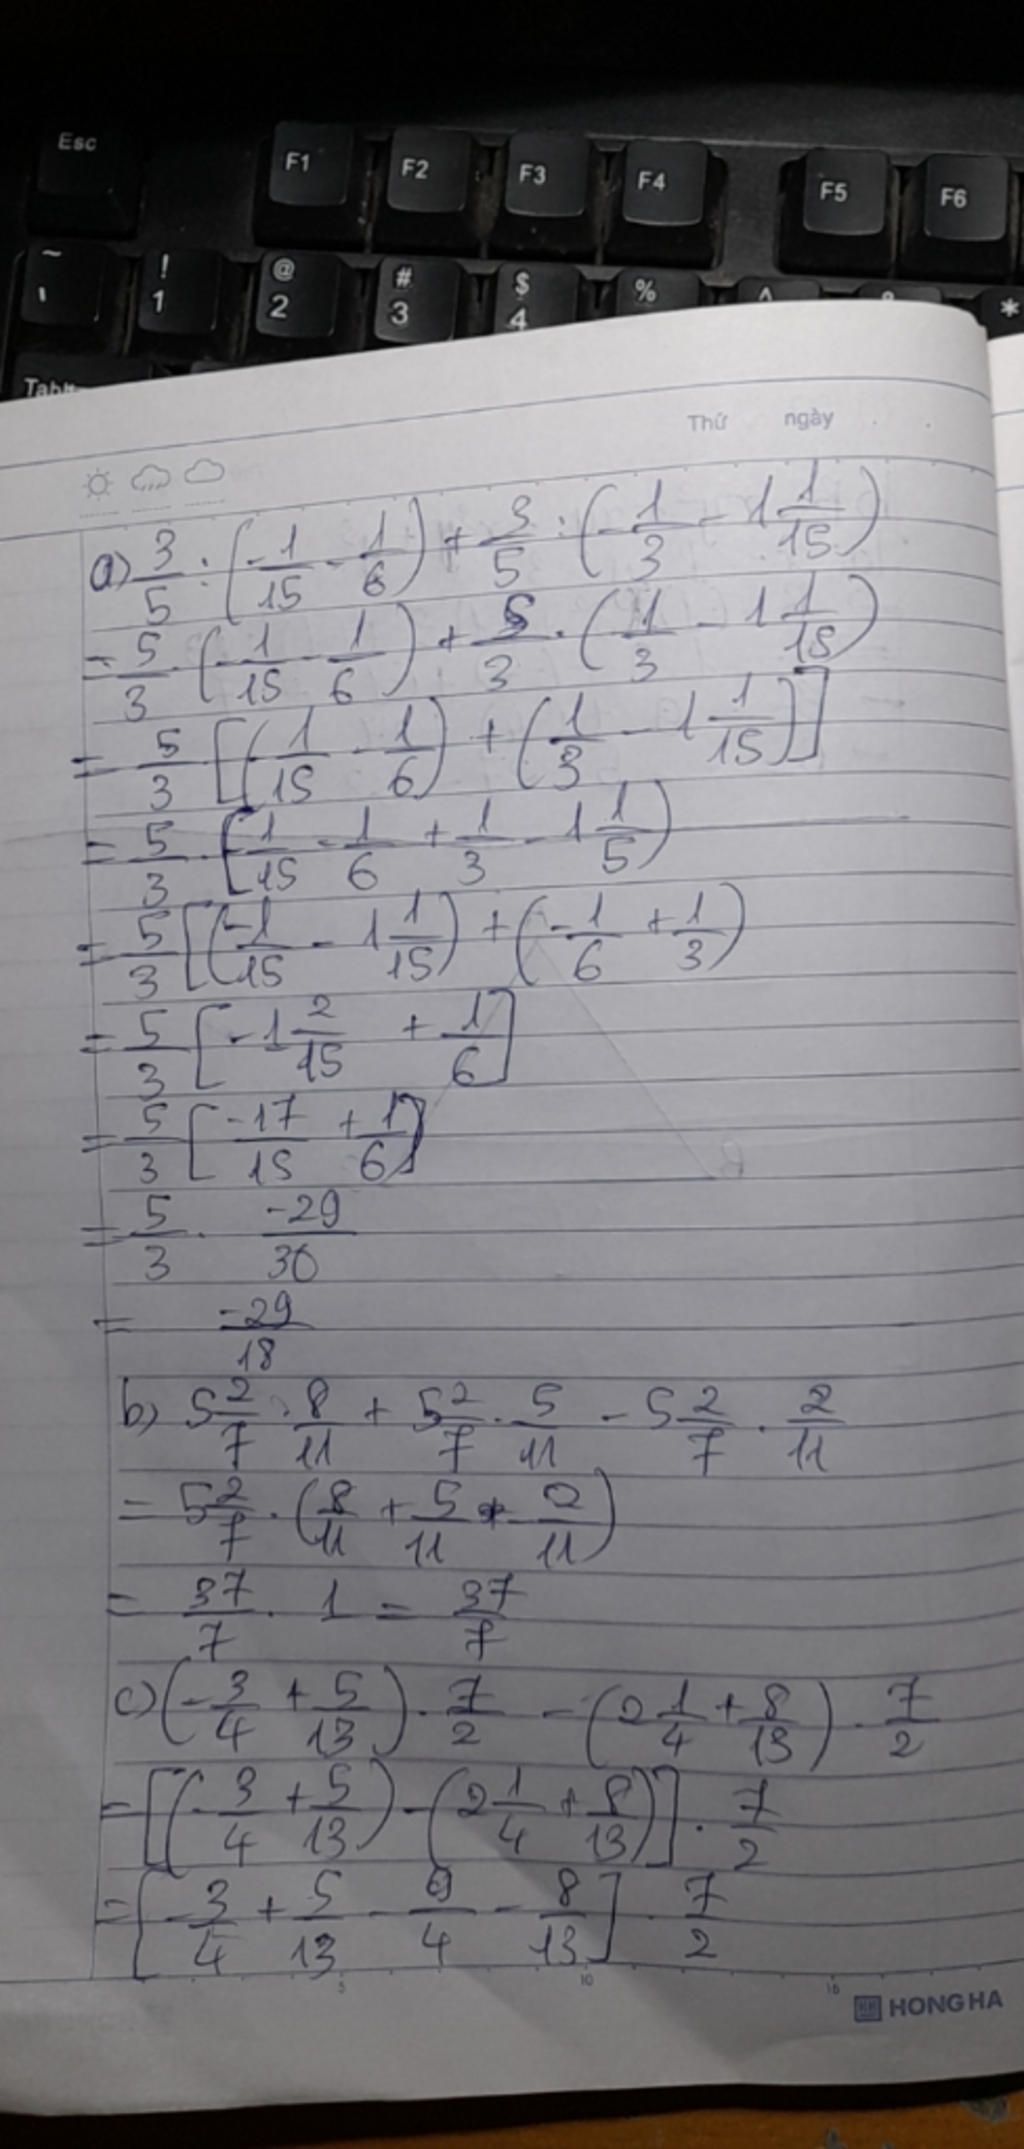 Esc F1 F2 F3 F4 F5 F6
~ ! 1 @ 2 # 3 $ 4 % ^ *
Tab
Thứ ngày
a) 3/5 : (-1/15 - 1/6) + 3/5 : (-1/3 - 1 1/15)
= 5/3 . (-1/15 - 1/6) + 5/3 . (1/3 - 1 1/15)
= 5/3 [(-1/15 - 1/6) + (1/3 - 1 1/15)]
= 5/3 . [-1/15 - 1/6 + 1/3 - 1 1/5)
= 5/3 [(-1/15 - 1 1/15) + (-1/6 + 1/3)
= 5/3 [-1 2/15 + 1/6]
= 5/3 [-17/15 + 1/6]
= 5/3 . -29/30
= -29/18
b) 5 2/7 . 8/11 + 5 2/7 . 5/11 - 5 2/7 . 2/11
= 5 2/7 . (8/11 + 5/11 - 2/11)
= 37/7 . 1 = 37/7
c) (-3/4 + 5/13) . 7/2 - (2 1/4 + 8/13) . 7/2
= [(-3/4 + 5/13) - (2 1/4 + 8/13)] . 7/2
= [-3/4 + 5/13 - 9/4 - 8/13] . 7/2
5 10 15
HONG HA